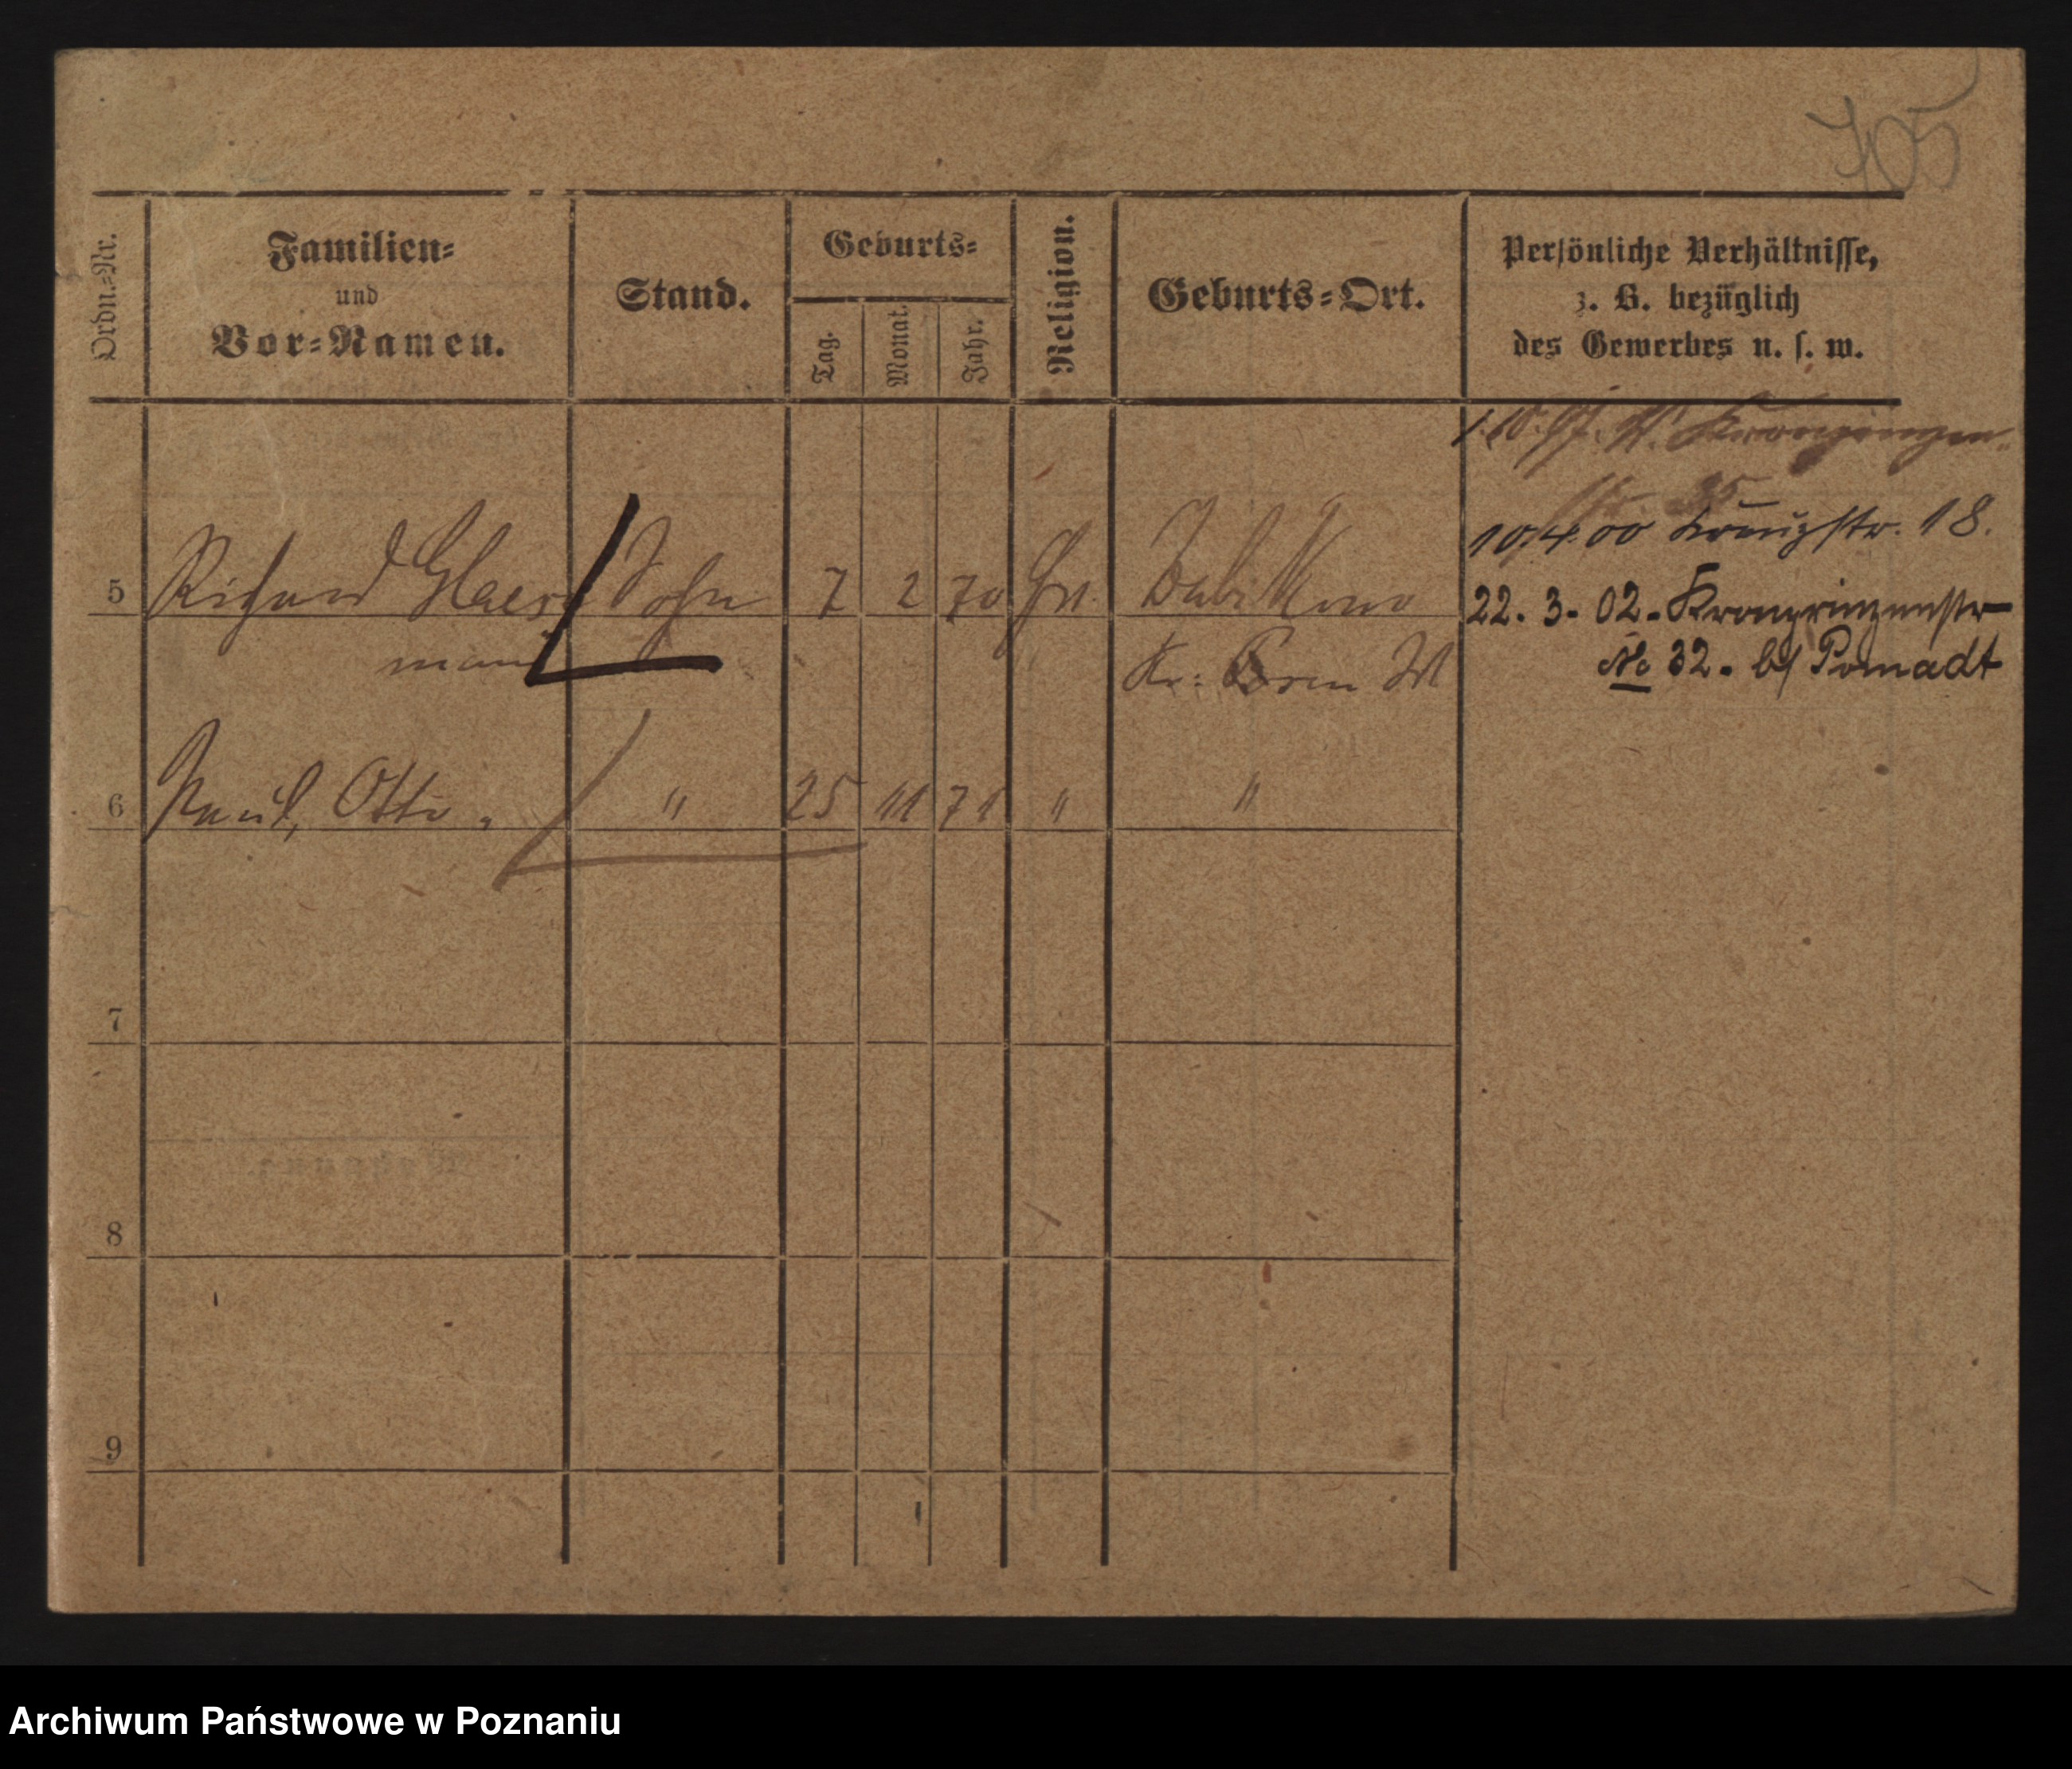 705
Ordn.=Nr.
Familien=
und
Vor=Namen.
Stand.
Geburts=
Tag.
Monat.
Jahr.
Religion.
Geburts=Ort.
Persönliche Verhältnisse,
z. B. bezüglich
des Gewerbes u. s. w.
1.10. 97. Kronprinzen
str. 35
10/4.00 Kreuzstr. 18.
5 Richard Glaese Sohn 7 2 70 Dubi
22. 3. 02. Kronprinzenstr
mann Kr: Posen W
No 32. b/ Pomadt
6 Paul, Otto " " 25 11 71 " "
7
8
9
Archiwum Państwowe w Poznaniu